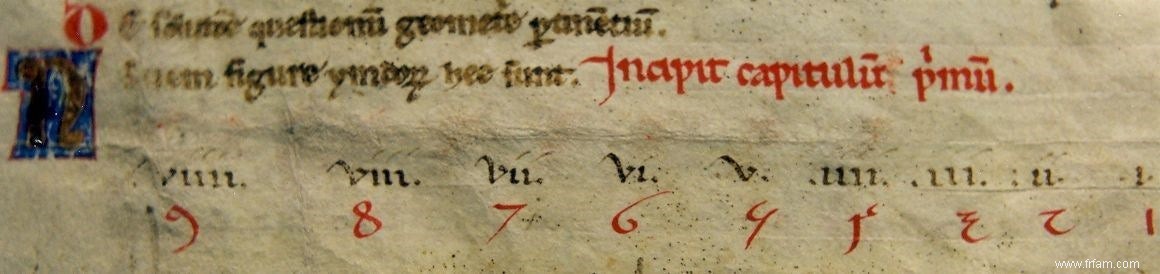 De solutione questionum geometrie pertinentium.
Nouem figure yndorum hee sunt. Incipit capitulum primum.
viiii. viii. vii. vi. v. iiii. iii. ii. i
9 8 7 6 5 4 3 2 1
www.frfam.com